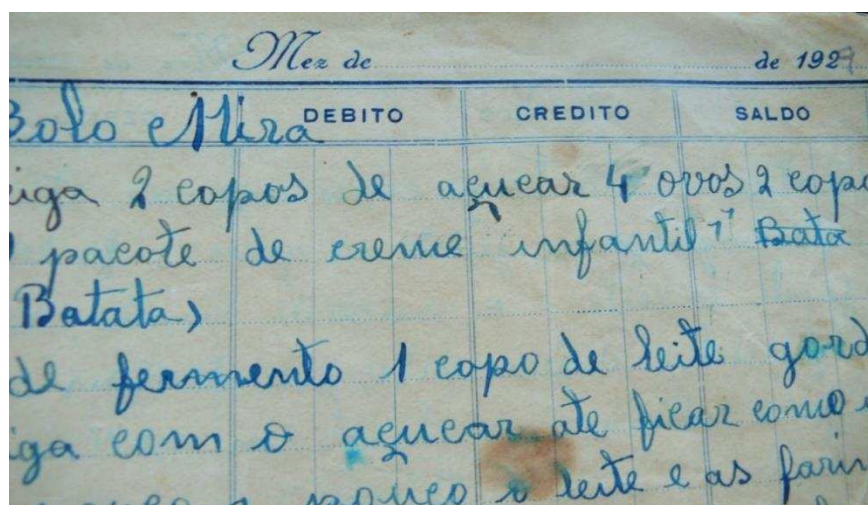 Mez de de 192
DEBITO CREDITO SALDO
Bolo Mira
iga 2 copos de açucar 4 ovos 2 copo
pacote de creme infantil Bata
Batata)
de fermento 1 copo de leite gord
iga com o açucar ate ficar como
pouco o leite e as farin